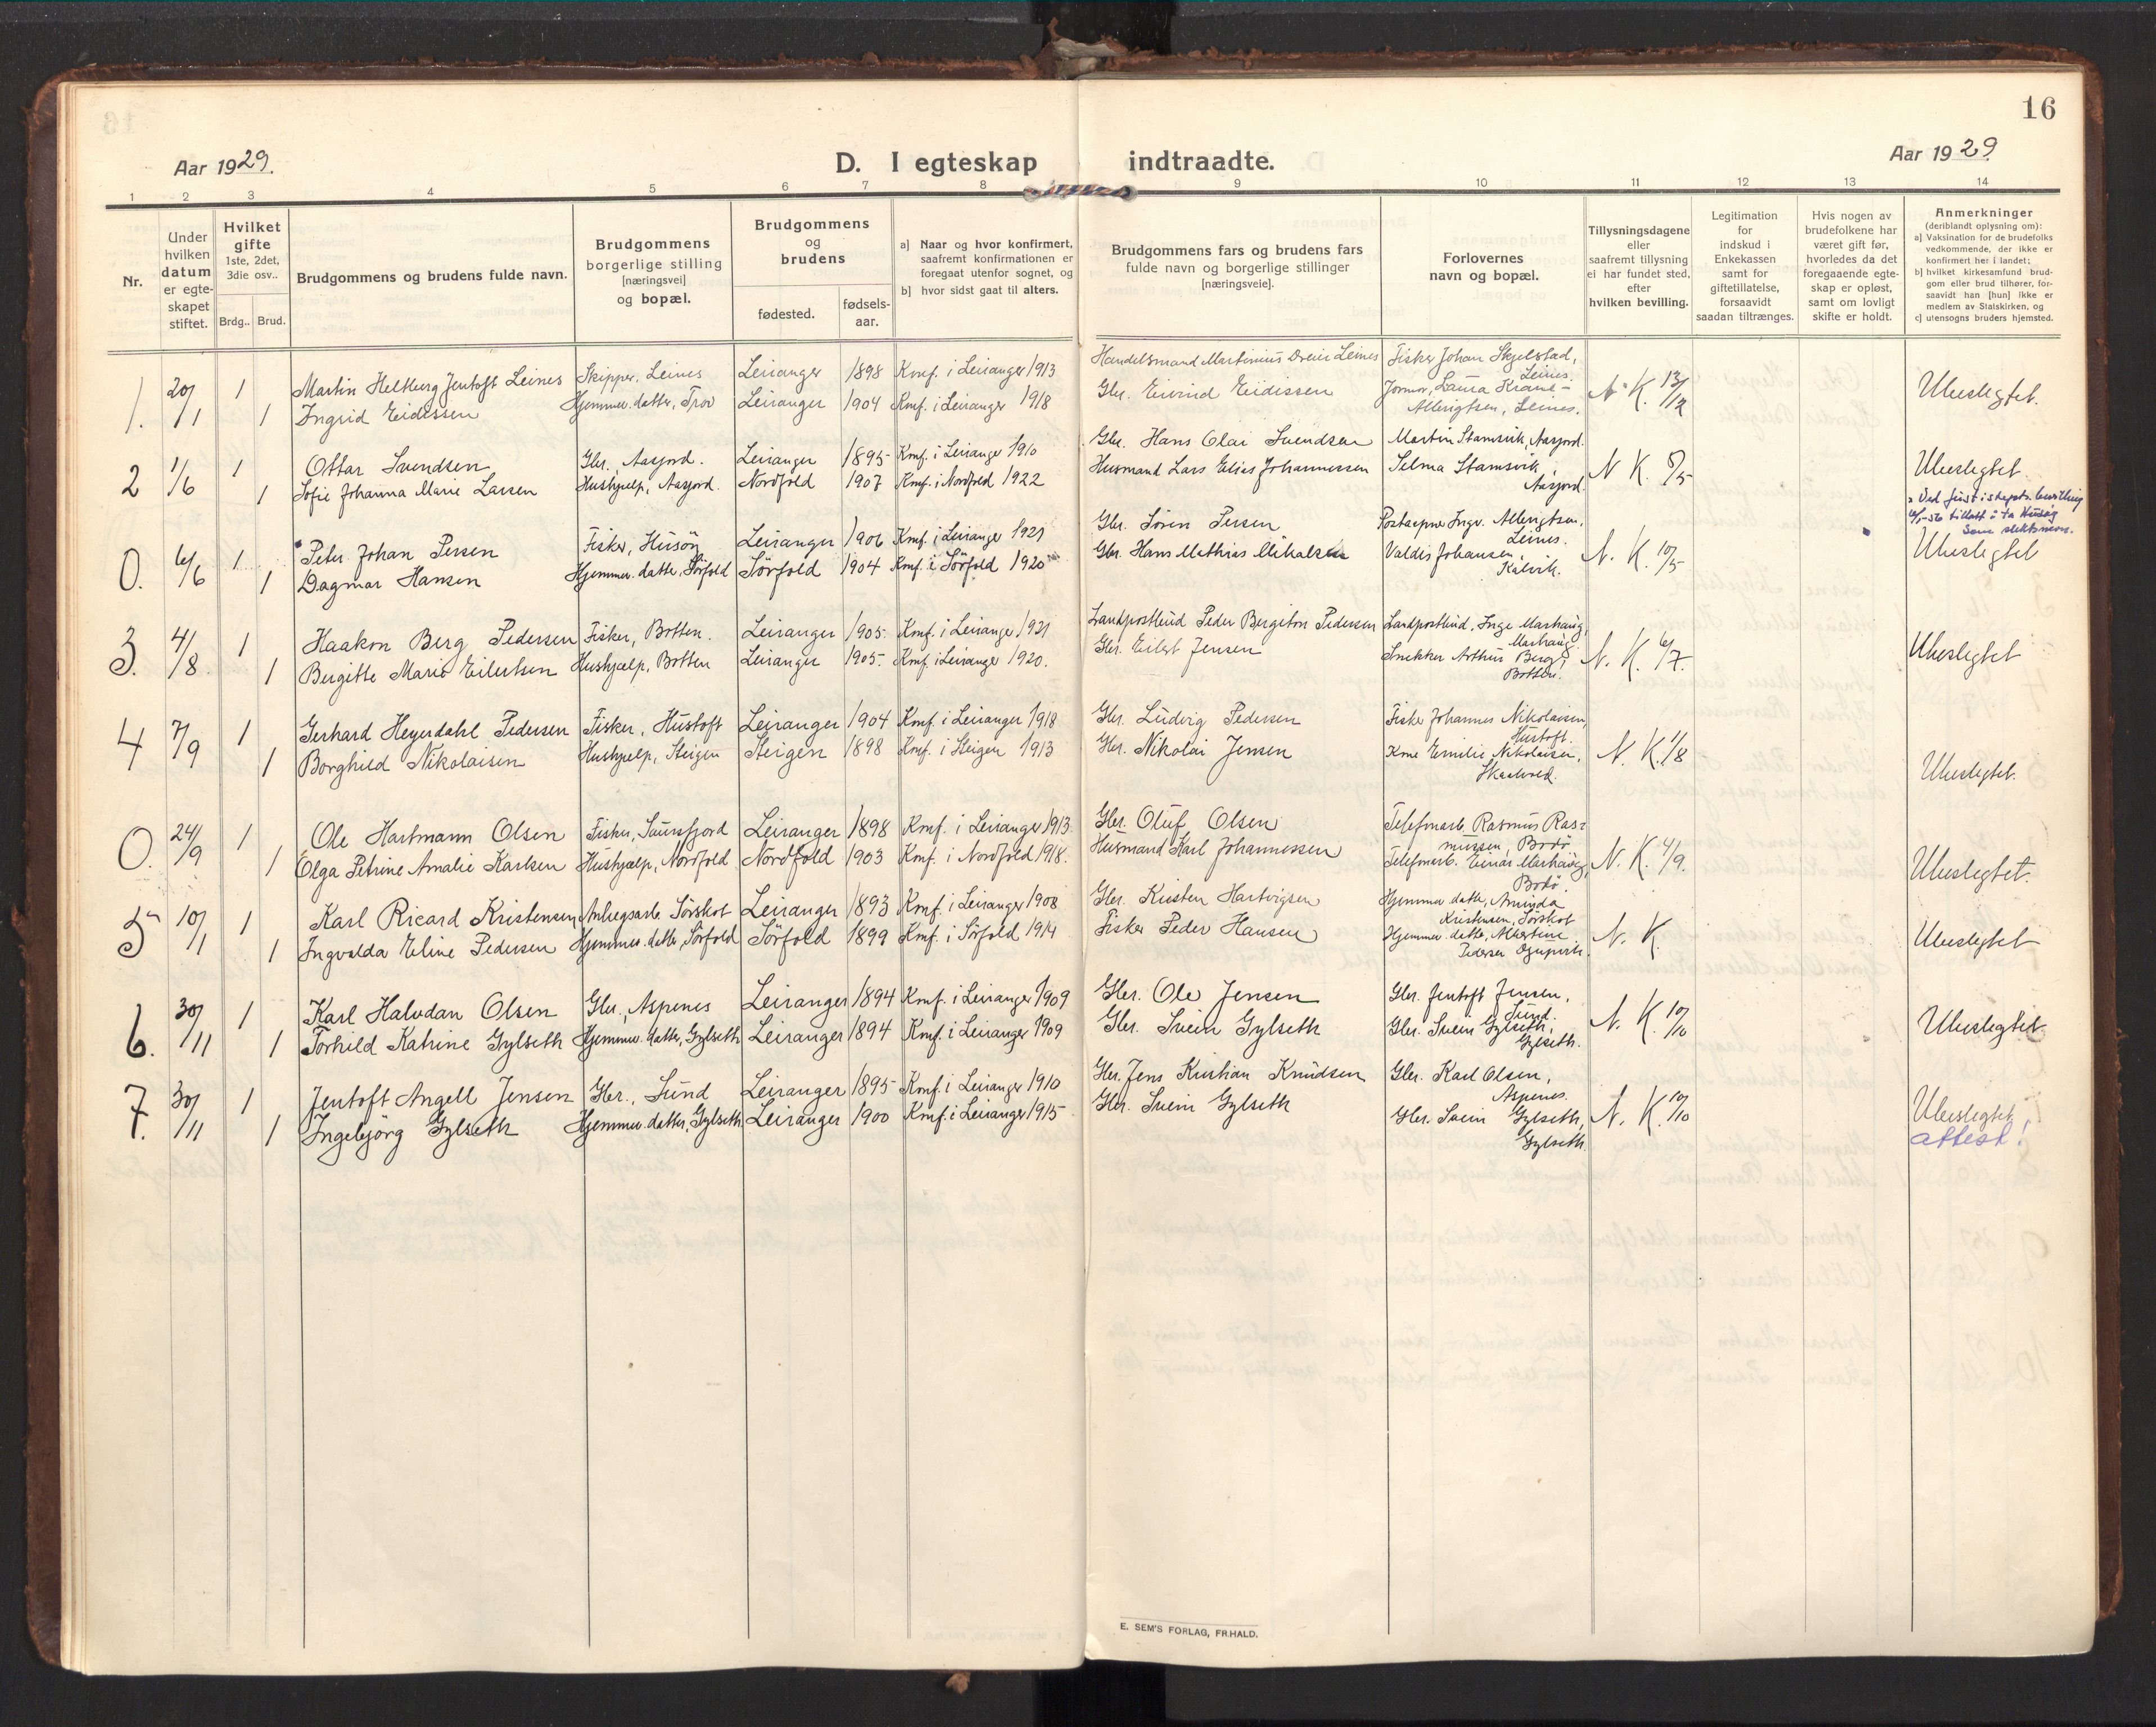 16
Aar 1929.
D. I egteskap indtraadte.
Aar 1929
1 2 3 4 5 6 7 8 9 10 11 12 13 14
Nr.
Under hvilken datum er egteskapet stiftet.
Hvilket gifte 1ste, 2det, 3die osv..
Brdg.. Brud.
Brudgommens og brudens fulde navn.
Brudgommens borgerlige stilling [næringsvei] og bopæl.
Brudgommens og brudens
fødested.
fødselsaar.
a] Naar og hvor konfirmert, saafremt konfirmationen er foregaat utenfor sognet, og
b] hvor sidst gaat til alters.
Brudgommens fars og brudens fars fulde navn og borgerlige stillinger [næringsveie].
Forlovernes navn og bopæl.
Tillysningsdagene eller saafremt tillysning ei har fundet sted, efter hvilken bevilling.
Legitimation for indskud i Enkekassen samt for giftetillatelse, forsaavidt saadan tiltrænges.
Hvis nogen av brudefolkene har været gift før, hvorledes da det foregaaende egteskap er opløst, samt om lovligt skifte er holdt.
Anmerkninger (deriblandt oplysning om):
a] Vaksination for de brudefolks vedkommende, der ikke er konfirmert her i landet;
b] hvilket kirkesamfund brudgom eller brud tilhører, forsaavidt han [hun] ikke er medlem av Statskirken, og
c] utensogns bruders hjemsted.
1. 20/1 1 Martin Heltberg Jentoft Leines Skipper, Leines Leiranger 1898 Konf. i Leiranger 1913 Handelsmand Martinius Dreier Leines Fisker Johan Skjelstad, Leines.
1 Ingrid Eidissen Hjemmev. datter, Leiranger 1904 Konf. i Leiranger 1918 Gbr. Eivind Eidissen Jormor, Laura Krane-Albrigtsen, Leines. N. K. 13/12 Ubeslegtet.
2 1/6 1 Ottar Svendsen Gbr., Aasjord. Leiranger 1895 Konf. i Leiranger 1910 Gbr. Hans Olai Svendsen Martin Stamsvik, Aasjord.
1 Sofie Johanna Marie Larsen Hushjælp, Aasjord. Nordfold 1907 Konf. i Nordfold 1922 Husmand Lars Elias Johannessen Selma Stamsvik, Aasjord. N K. 5/5 Ubeslegtet.
0. 6/6 1 Peder Johan Persen Fisker, Husöy Leiranger 1906 Konf. i Leiranger 1921 Gbr. Sören Persen Postaapner Ingv. Albrigtsen, Leines.
1 Dagmar Hansen Hjemmev. datter, Sörfold Sörfold 1904 Konf. i Sörfold 1920 Gbr. Hans Mathias Mikalsen Valdis Johansen, Kalvik. N. K. 10/5 Ubeslegtet
3. 4/8 1 Haakon Berg Pedersen Fisker, Botten. Leiranger 1905. Konf. i Leiranger 1921 Landpostbud Peder Bergiton Pedersen Landpostbud, Inge Marhaug, Marhaug
1 Bergitte Marie Eilertsen Hushjælp, Botten Leiranger 1905. Konf. i Leiranger 1920. Gbr. Eilert Jensen Snekker Arthur Berg, Botten. N. K. 6/7. Ubeslegtet
4 7/9 1 Gerhard Heyerdahl Pedersen Fisker, Hustoft Leiranger 1904 Konf. i Leiranger 1918 Gbr. Ludvig Pedersen Fisker Johannes Nikolaisen, Hustoft.
1 Borghild Nikolaisen Hushjælp, Steigen Steigen 1898 Konf. i Steigen 1913 Gbr. Nikolai Jensen Kone Emilie Nikolaisen, N. K. 1/8 Ubeslegtet.
0. 24/9 1 Ole Hartmann Olsen Fisker, Saursfjord Leiranger 1898 Konf. i Leiranger 1913. Gbr. Oluf Olsen Telefonarb. Rasmus Rasmussen, Bodö
1 Olga Petrine Amalie Karlsen Hushjælp, Nordfold Nordfold 1903 Konf. i Nordfold 1918. Husmand Karl Johannessen Telefonarb. Einar Marhaug, Bodö. N. K. 4/9. Ubeslegtet.
5 10/1 1 Karl Ricard Kristensen Anlegsarb. Sörskot Leiranger 1893 Konf. i Leiranger 1908 Gbr. Kristen Hartvigsen Hjemmev. datter, Aminda Kristensen, Sörskot
1 Ingvalda Eline Pedersen Hjemmev. datter, Sörfold Sörfold 1899 Konf. i Sörfold 1914 Fisker Peder Hansen Hjemmev. datter, Albertine Pedersen N. K Ubeslegtet
6. 30/11 1 Karl Halvdan Olsen Gbr., Aspenes Leiranger 1894 Konf. i Leiranger 1909 Gbr. Ole Jensen Gbr. Jentoft Jensen, Sund.
1 Torhild Katrine Gylseth Hjemmev. datter, Gylseth Leiranger 1894 Konf. i Leiranger 1909 Gbr. Svein Gylseth Gbr. Svein Gylseth, Gylseth. N. K. 10/10 Ubeslegtet.
7. 30/11 1 Jentoft Angell Jensen Gbr., Sund Leiranger 1895 Konf. i Leiranger 1910 Gbr. Jens Kristian Knudsen Gbr. Karl Olsen, Aspenes.
1 Ingebjörg Gylseth Hjemmev. datter, Gylseth Leiranger 1900 Konf. i Leiranger 1915 Gbr. Svein Gylseth Gbr. Svein Gylseth, Gylseth. N. K. 10/10 Ubeslegtet
attest!
E. SEM'S FORLAG, FR.HALD.